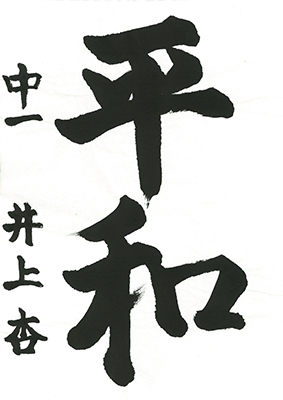 平和
中一 井上杏